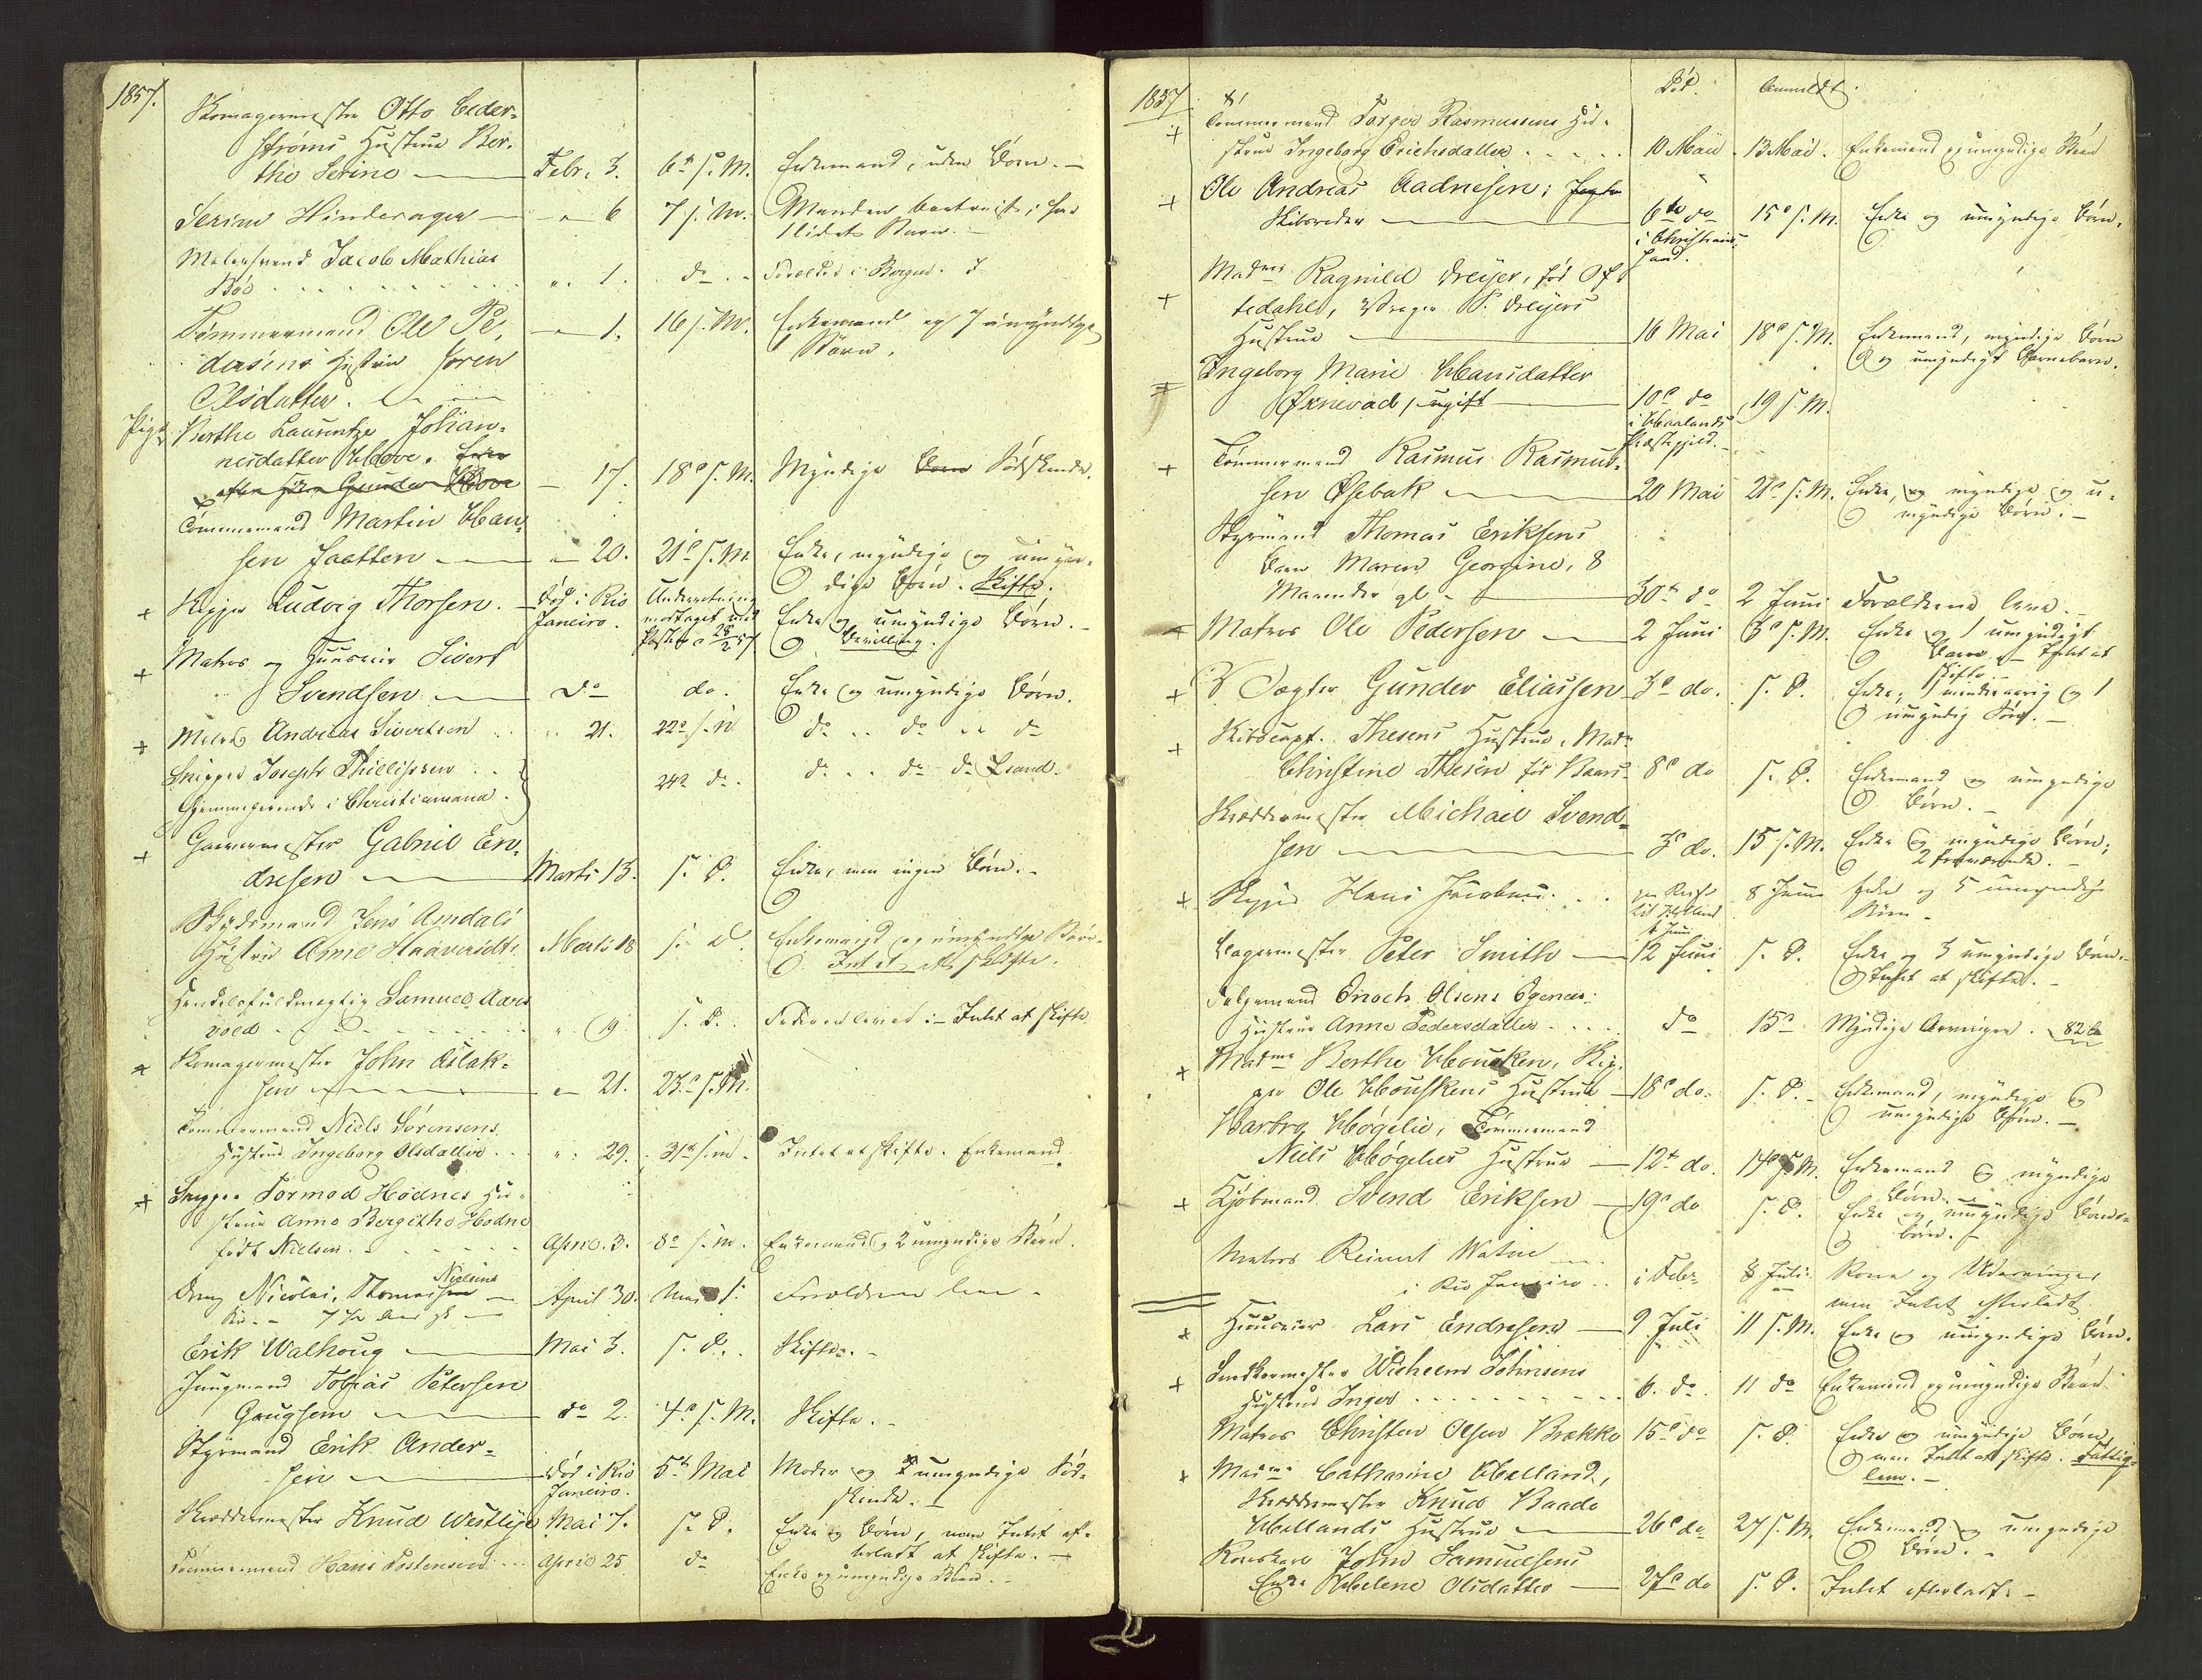 1857.
Skomagermester Otto Ceder-
strøms Hustrue Ber-
the Serine — Febr. 3. 6te s. M. Enkemand, uden Børn. —
Serine Hinderager — " 6 7 s. M. Manden bortreist; har
1 lidet Barn. —
Malersvend Jacob Mathias
Bøe " 1. do Forældre i Bergen.
Tømmermand Ole Pe- — " 1. 16 s. M. Enkemand og 7 umyndige
dersens Hustrue Søren Børn.
Olsdatter.
Pige Berthe Laurentze Johan-
nesdatter Hove. Enke
efter Gunder Hove — 17. 18de s. M. Myndige Børn Sødskende.
Tømmermand Martin Han-
sen Jaatten — " 20. 21de s. M. Enke, myndige og umyn-
dige Børn. Skifte.
+ Skipper Ludvig Thorsen. — Død i Rio Janeiro. Underretning modtaget med Posten 28/2 57 Enke og umyndige Børn. —
Bevilling.
+ Matros og Huuseier Sivert
Svendsen — do do. Enke og umyndige Børn.
+ Andreas Sivertsen " 21. 22de s. M. do do do
Skipper Joseph Phillipsen
hjemmehørende i Christiansand. 24de do. do do do
+ Garvermester Gabriel En-
dresen — Marts 13. s. D. Enke, men ingen Børn. —
Jens Amdals
Hustrue Anne Haaversdt. Marts 18 s. D. Enkemand og umyndige Børn.
Intet at skifte.
Handelsfuldmægtig Samuel Aars
vold " 19 s. D. Faderen lever. — Intet at skifte
+ Skomagermester John Aslak-
sen — " 21. 23de s. M.
Tømmermand Niels Sørensens
Hustrue Ingeborg Olsdatter " 29. 31te s. M. Intet at skifte. Enkemand.
+ Skipper Tormod Hodnes Hu-
strue Anne Bergithe Hodne
født Nielsen April 3. 8de s. M. Enkemand og 2 umyndige Børn.
Dreng Nicolai, Thomas Nielsens
7 Aar gl. — April 30. Mai 1. Forældrene leve.
Erik Walhoug — Mai 3. s. D. Skifte. —
Jungmand Tobias Petersen
Gaugsem — do 2. 4de s. M. Skifte. —
Styrmand Erik Ander-
sen — Død i Rio Janeiro. 5te Mai Moder og 2 umyndige Sød-
skende. —
Skræddermester Knud Westlye Mai 7. s. D. Enke og Børn, men Intet ef-
terladt at skifte. —
Tømmermand Hans Tostensen April 25. do Enke og umyndige Børn. —
1857 Død. Anmeldt.
+ Tømmermand Torger Rasmussens Hu-
strue Ingeborg Erichsdatter 10 Mai 13 Mai. Enkemand og umyndige Børn
+ Ole Andreas Aadnesen;
Skibsreder — 6te do i Christiansand. 15de s. M. Enke og umyndige Børn.
+ Madme Ragnild Dreijer, fød Of-
tedahl, P. Dreijers
Hustrue — 16 Mai 18de s. M. Enkemand, myndige Børn
og umyndigt Barnebarn.
+ Ingeborg Marie Hansdatter
Øxnevad, ugift — 10de do i Haalands Præstegjeld. 19 s. M.
+ Tømmermand Rasmus Rasmus-
sen Østbak — 20 Mai 21de s. M. Enke, og myndige og u-
myndige Børn. —
Styrmand Thomas Eriksens
Barn Maren Georgine, 8
Maaneder gl. — 30te do 2 Juni Forældrene leve. —
+ Matros Ole Pedersen — 2 Juni 6te s. M. Enke og 1 umyndigt
Barn. — Intet at skifte. —
+ Gunder Eliassen 3de do. s. D. Enke; 1 mindreaarig og 1
umyndig Søn. —
+ Skibscapt. Thesens Hustrue, Madme
Christine Thesen fød 8de do s. D. Enkemand og umyndige
Børn. —
Skræddermester Michael Svend-
sen — 3de do. 15 s. M. Enke og myndige Børn;
2 fraværende. —
+ Skipper Hans Jacobsen paa Reise til Island 1 Juni 8 Juni Enke og 5 umyndige
Børn. —
Bagermester Peter Smith — 12 Juni s. D. Enke og 3 umyndige Børn.
Intet at skifte. —
Enoch Olsens
Hustrue Anne Pedersdatter do 15de Myndige Arvinger. 82
+ Madme Berthe Housken, Skip-
per Ole Houskens Hustrue — 18de do. s. D. Enkemand, myndige og
umyndige Børn. —
Barbra Høgelie, Tømmermand
Niels Høgelies Hustrue — 12te do. 14de s. M. Enkemand og myndige
Børn. —
+ Kjøbmand Svend Eriksen — 19de do s. D. Enke og umyndige Børne-
børn. —
Matros Reinert Watne
i Rio Janeiro i Febr. 8 Juli Kone og Udarvinger
men Intet efterladt
+ Huuseier Lars Endresen — 9 Juli 11 s. M. Enke og umyndige Børn.
+ Snedkermester Wilhelm Johnsens
Hustrue Inger 6. do. 11 do Enkemand og umyndige Børn
Matros Christen Olsen Brække 15de do s. D. Enke og umyndige Børn,
men Intet at skifte. Fattig-
lem. —
+ Madme Cathrine Helland,
Skræddermester Knud Baade
Hellands Hustrue — 26de do 27 s. M. Enkemand og umyndige
Børn. —
John Samuelsens
Enke Helene Olsdatter — 27de do s. D. Intet efterladt. —